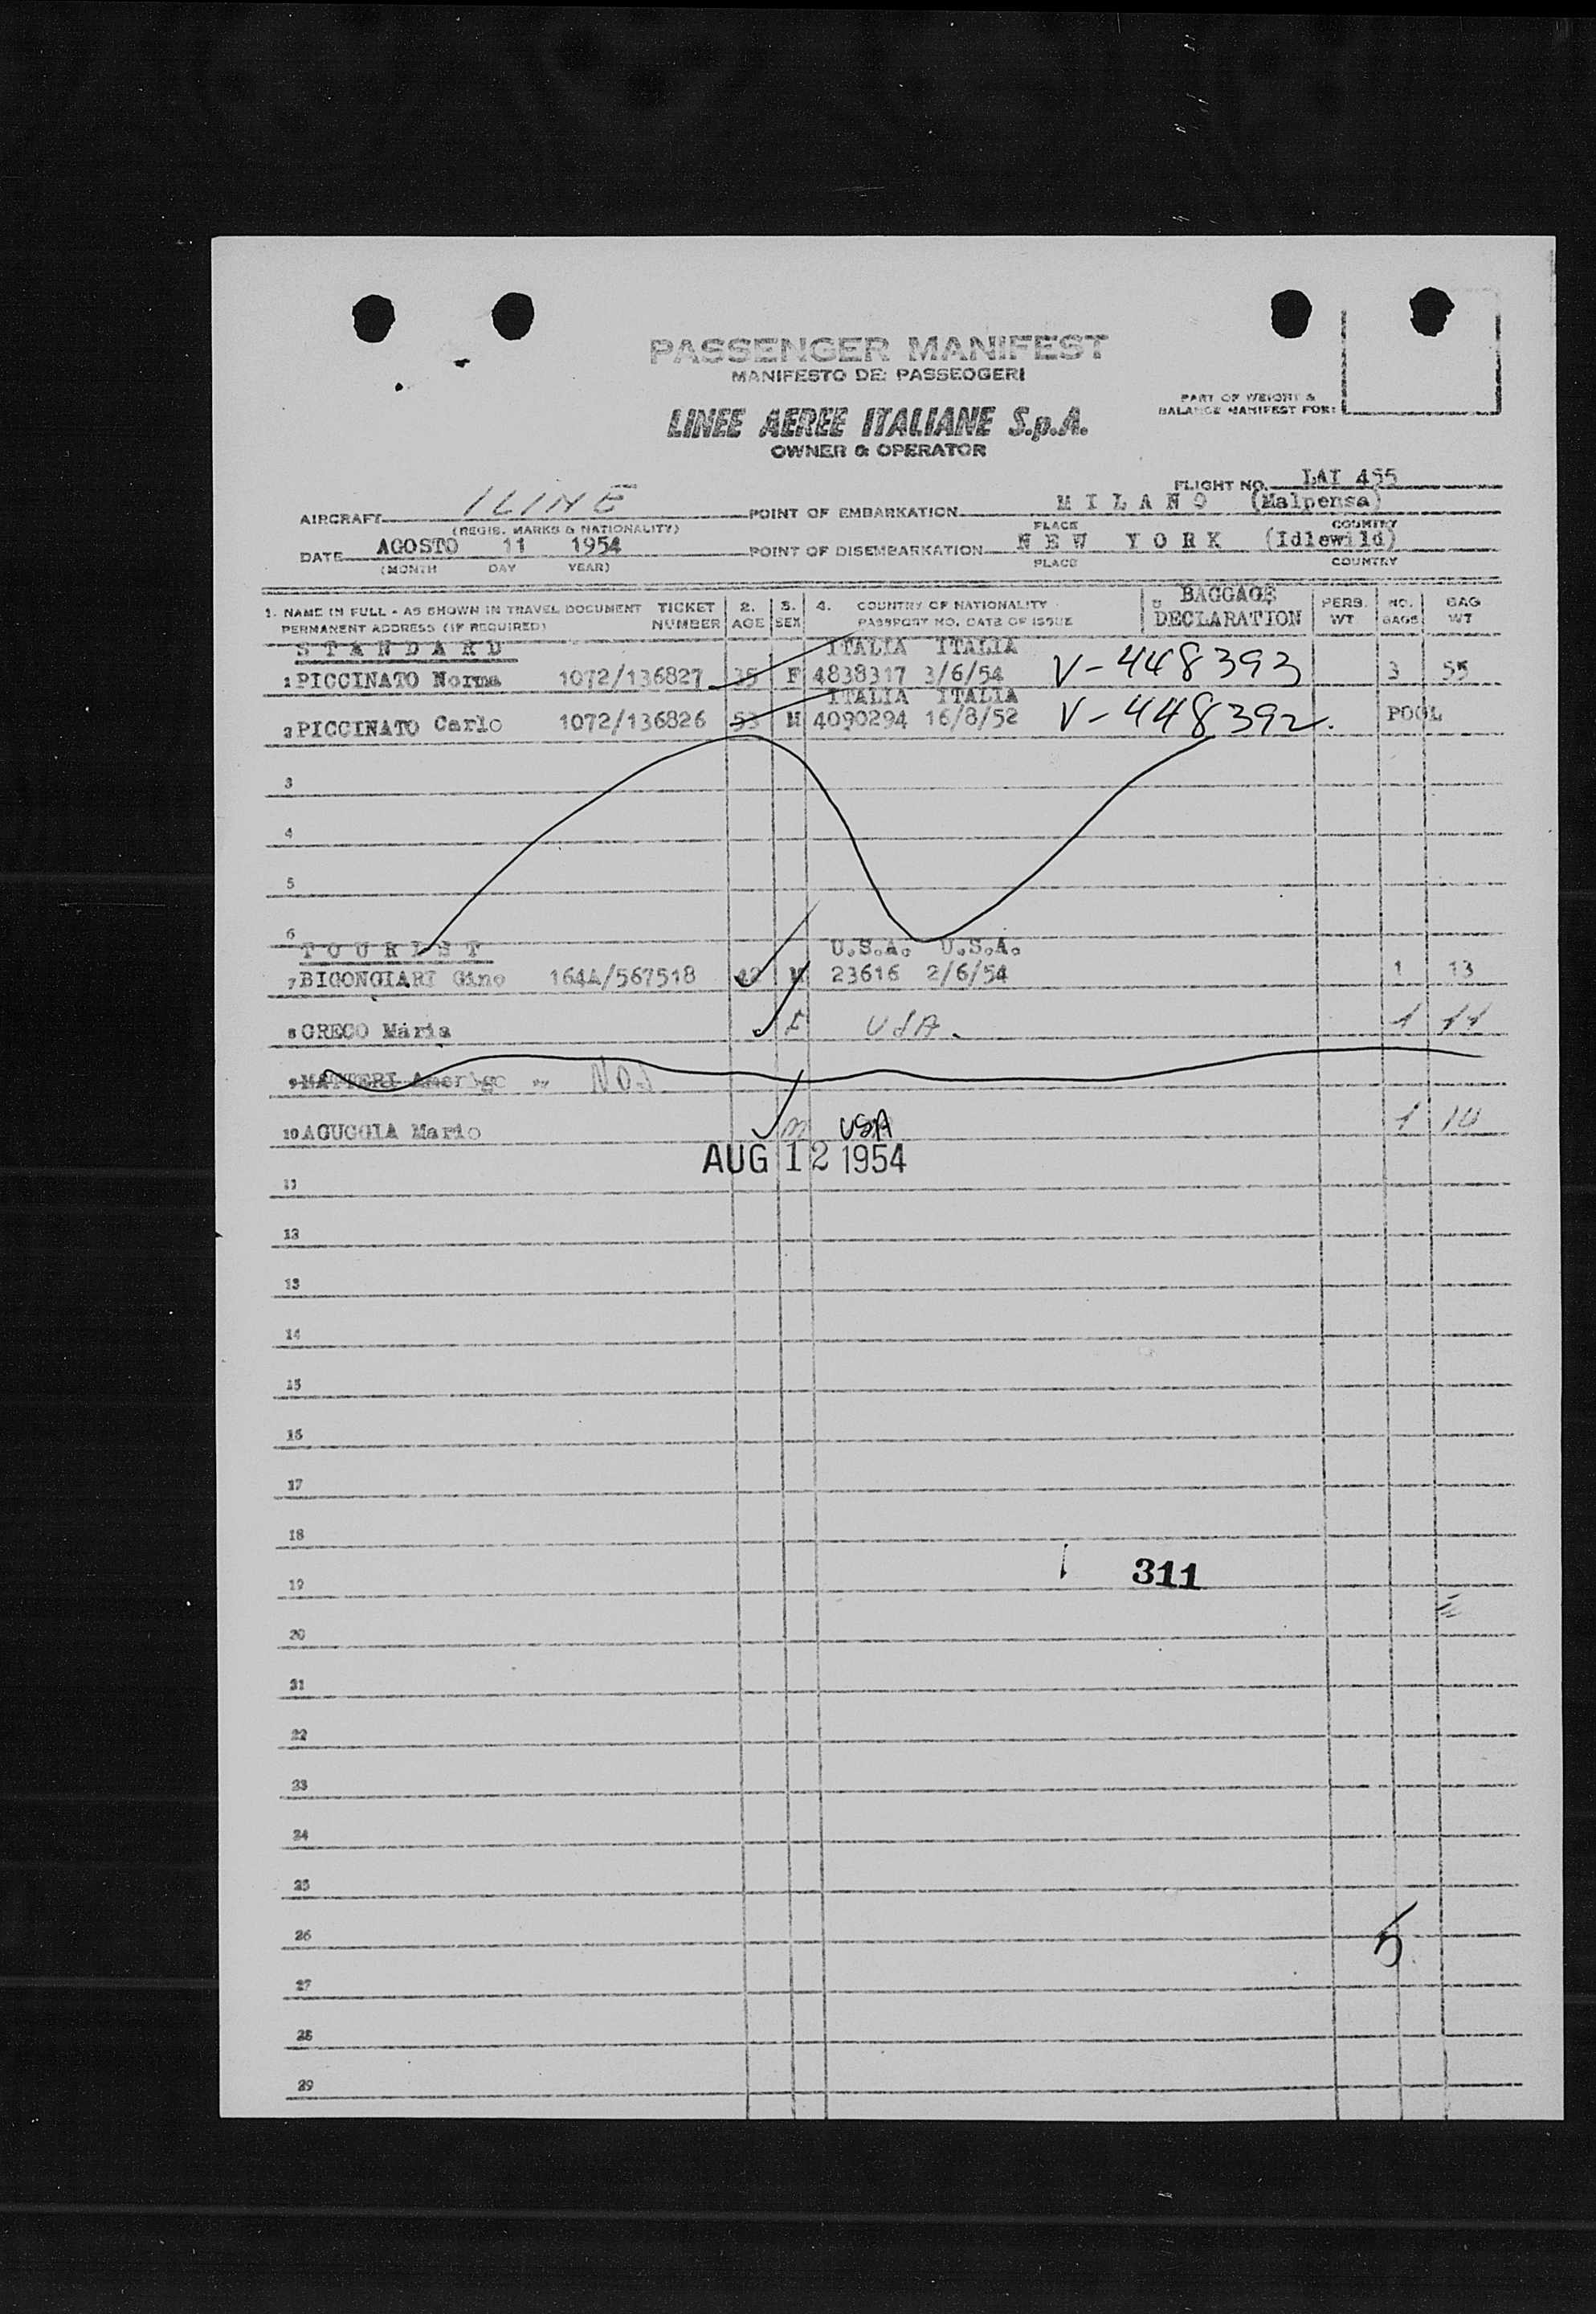 PASSENGER MANIFEST
MANIFESTO DEI PASSEGGERI
LINEE AEREE ITALIANE S.p.A.
OWNER & OPERATOR
PART OF WEIGHT &
BALANCE MANIFEST FOR:
FLIGHT NO. LAI 455
AIRCRAFT ILINE POINT OF EMBARKATION MILANO (Malpensa)
(REGIS. MARKS & NATIONALITY) PLACE COUNTRY
DATE AGOSTO 11 1954 POINT OF DISEMBARKATION NEW YORK (Idlewild)
(MONTH DAY YEAR) PLACE COUNTRY
1. NAME IN FULL - AS SHOWN IN TRAVEL DOCUMENT TICKET 2. 3. 4. COUNTRY OF NATIONALITY 5 BAGGAGE PERS. NO. BAG
PERMANENT ADDRESS (IF REQUIRED) NUMBER AGE SEX PASSPORT NO. DATE OF ISSUE DECLARATION WT BAGS WT
STANDARD ITALIA ITALIA
1 PICCINATO Norma 1072/136827 35 F 4838317 3/6/54 V-448393 3 55
ITALIA ITALIA
2 PICCINATO Carlo 1072/136826 53 M 4090294 16/8/52 V-448392. POOL
3
4
5
6
TOURIST U.S.A. U.S.A.
7 BICONGIARI Gino 164A/567518 42 M 23616 2/6/54 1 13
8 GRECO Maria F USA. 1 11
9 MATTERI Amerigo NOJ
10 AGUGGIA Mario m USA 1 10
AUG 12 1954
11
12
13
14
15
16
17
18
311
19
20
21
22
23
24
25
26 5
27
28
29